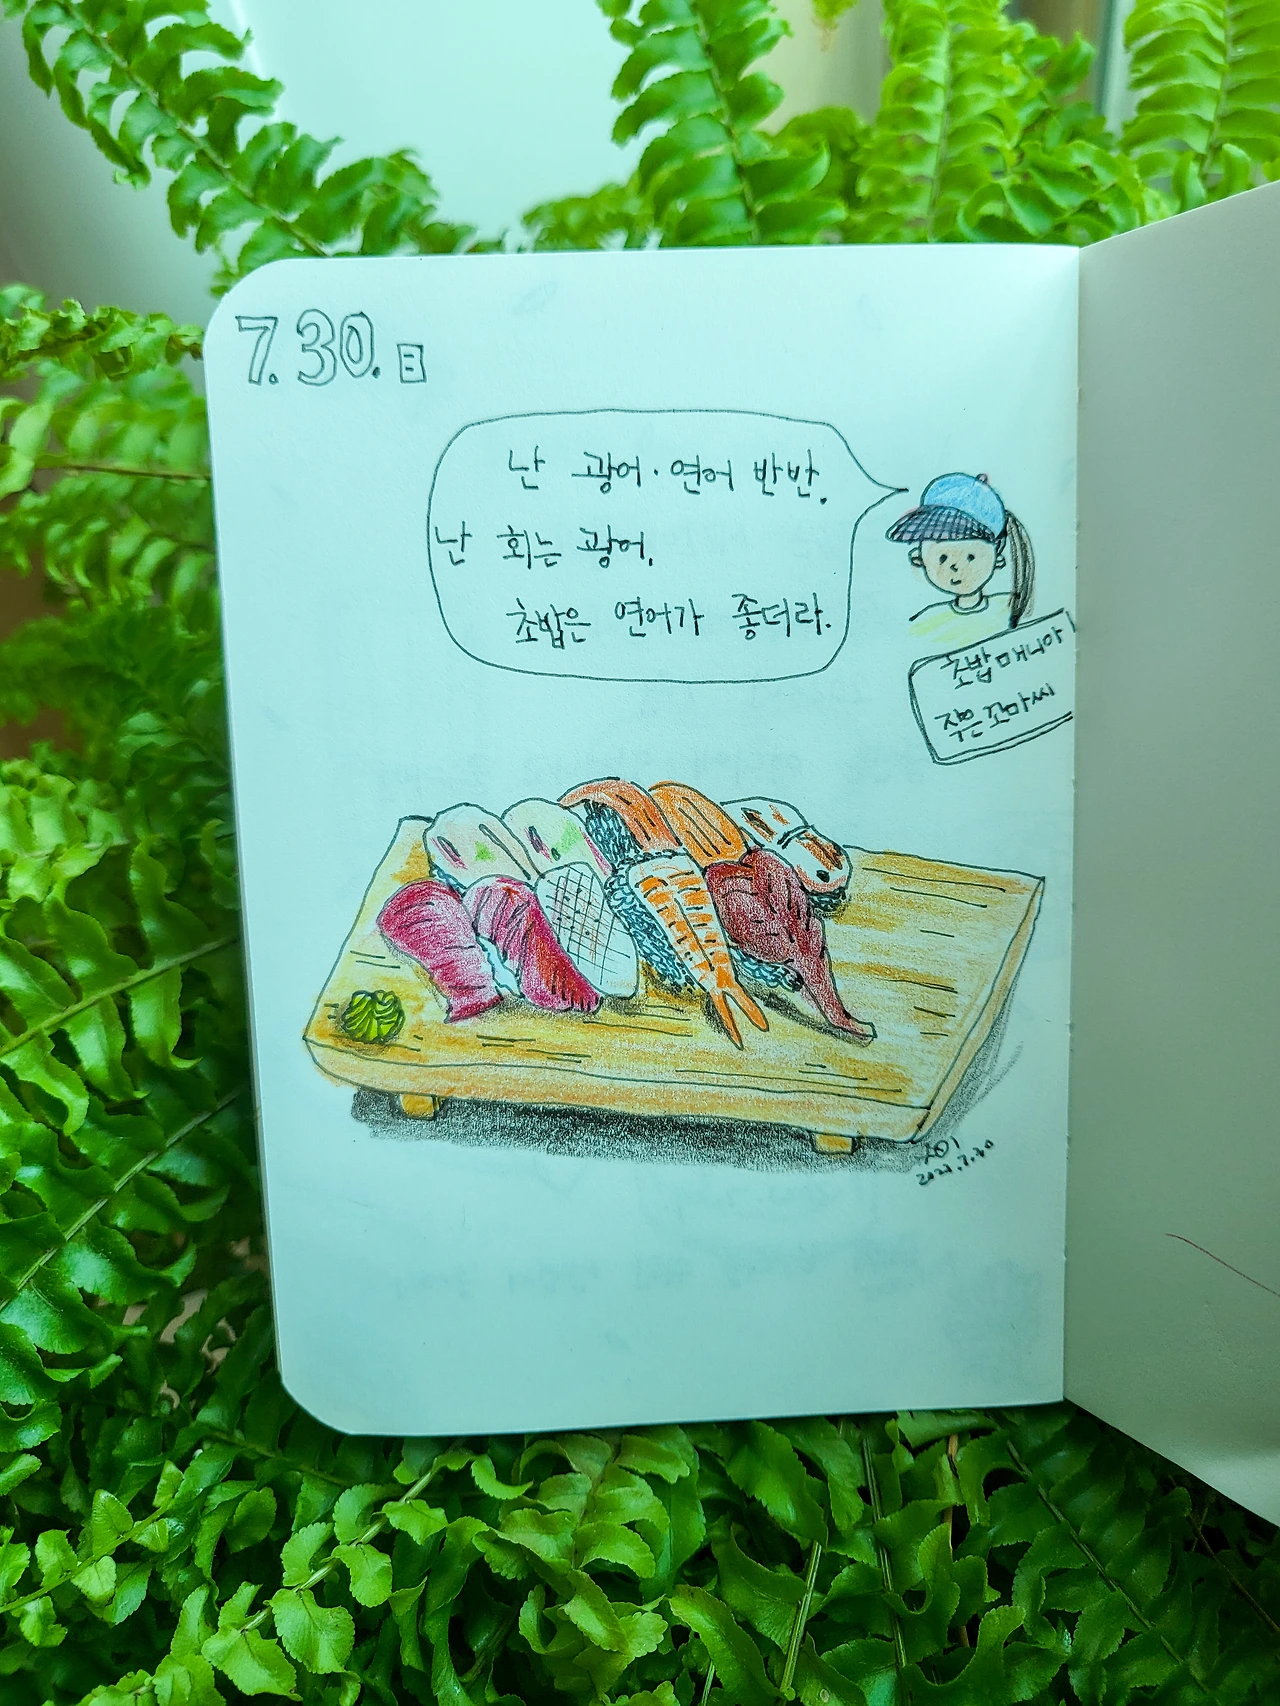 7.30.日
난 광어·연어 반반.
난 회는 광어.
초밥은 연어가 좋더라.
초밥 매니아
작은꼬마씨